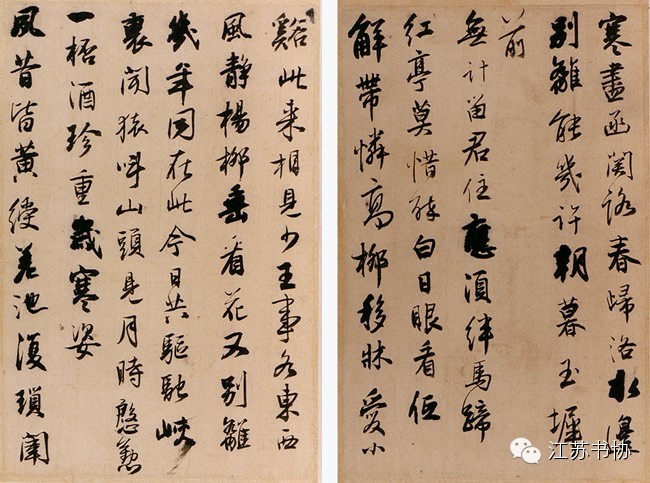 寒盡函關路春歸洛水邊
別離能幾許朝暮玉墀
前
無計留君住應須絆馬蹄
紅亭莫惜醉白日眼看低
解帶憐高柳移牀愛小
谿此來相見少王事各東西
風靜楊柳垂看花又別離
幾年同在此今日共驅馳峽
裏聞猿叫山頭見月時慇懃
一桮酒珍重歲寒姿
夙昔皆黃綬差池復瑣闈
江苏书协